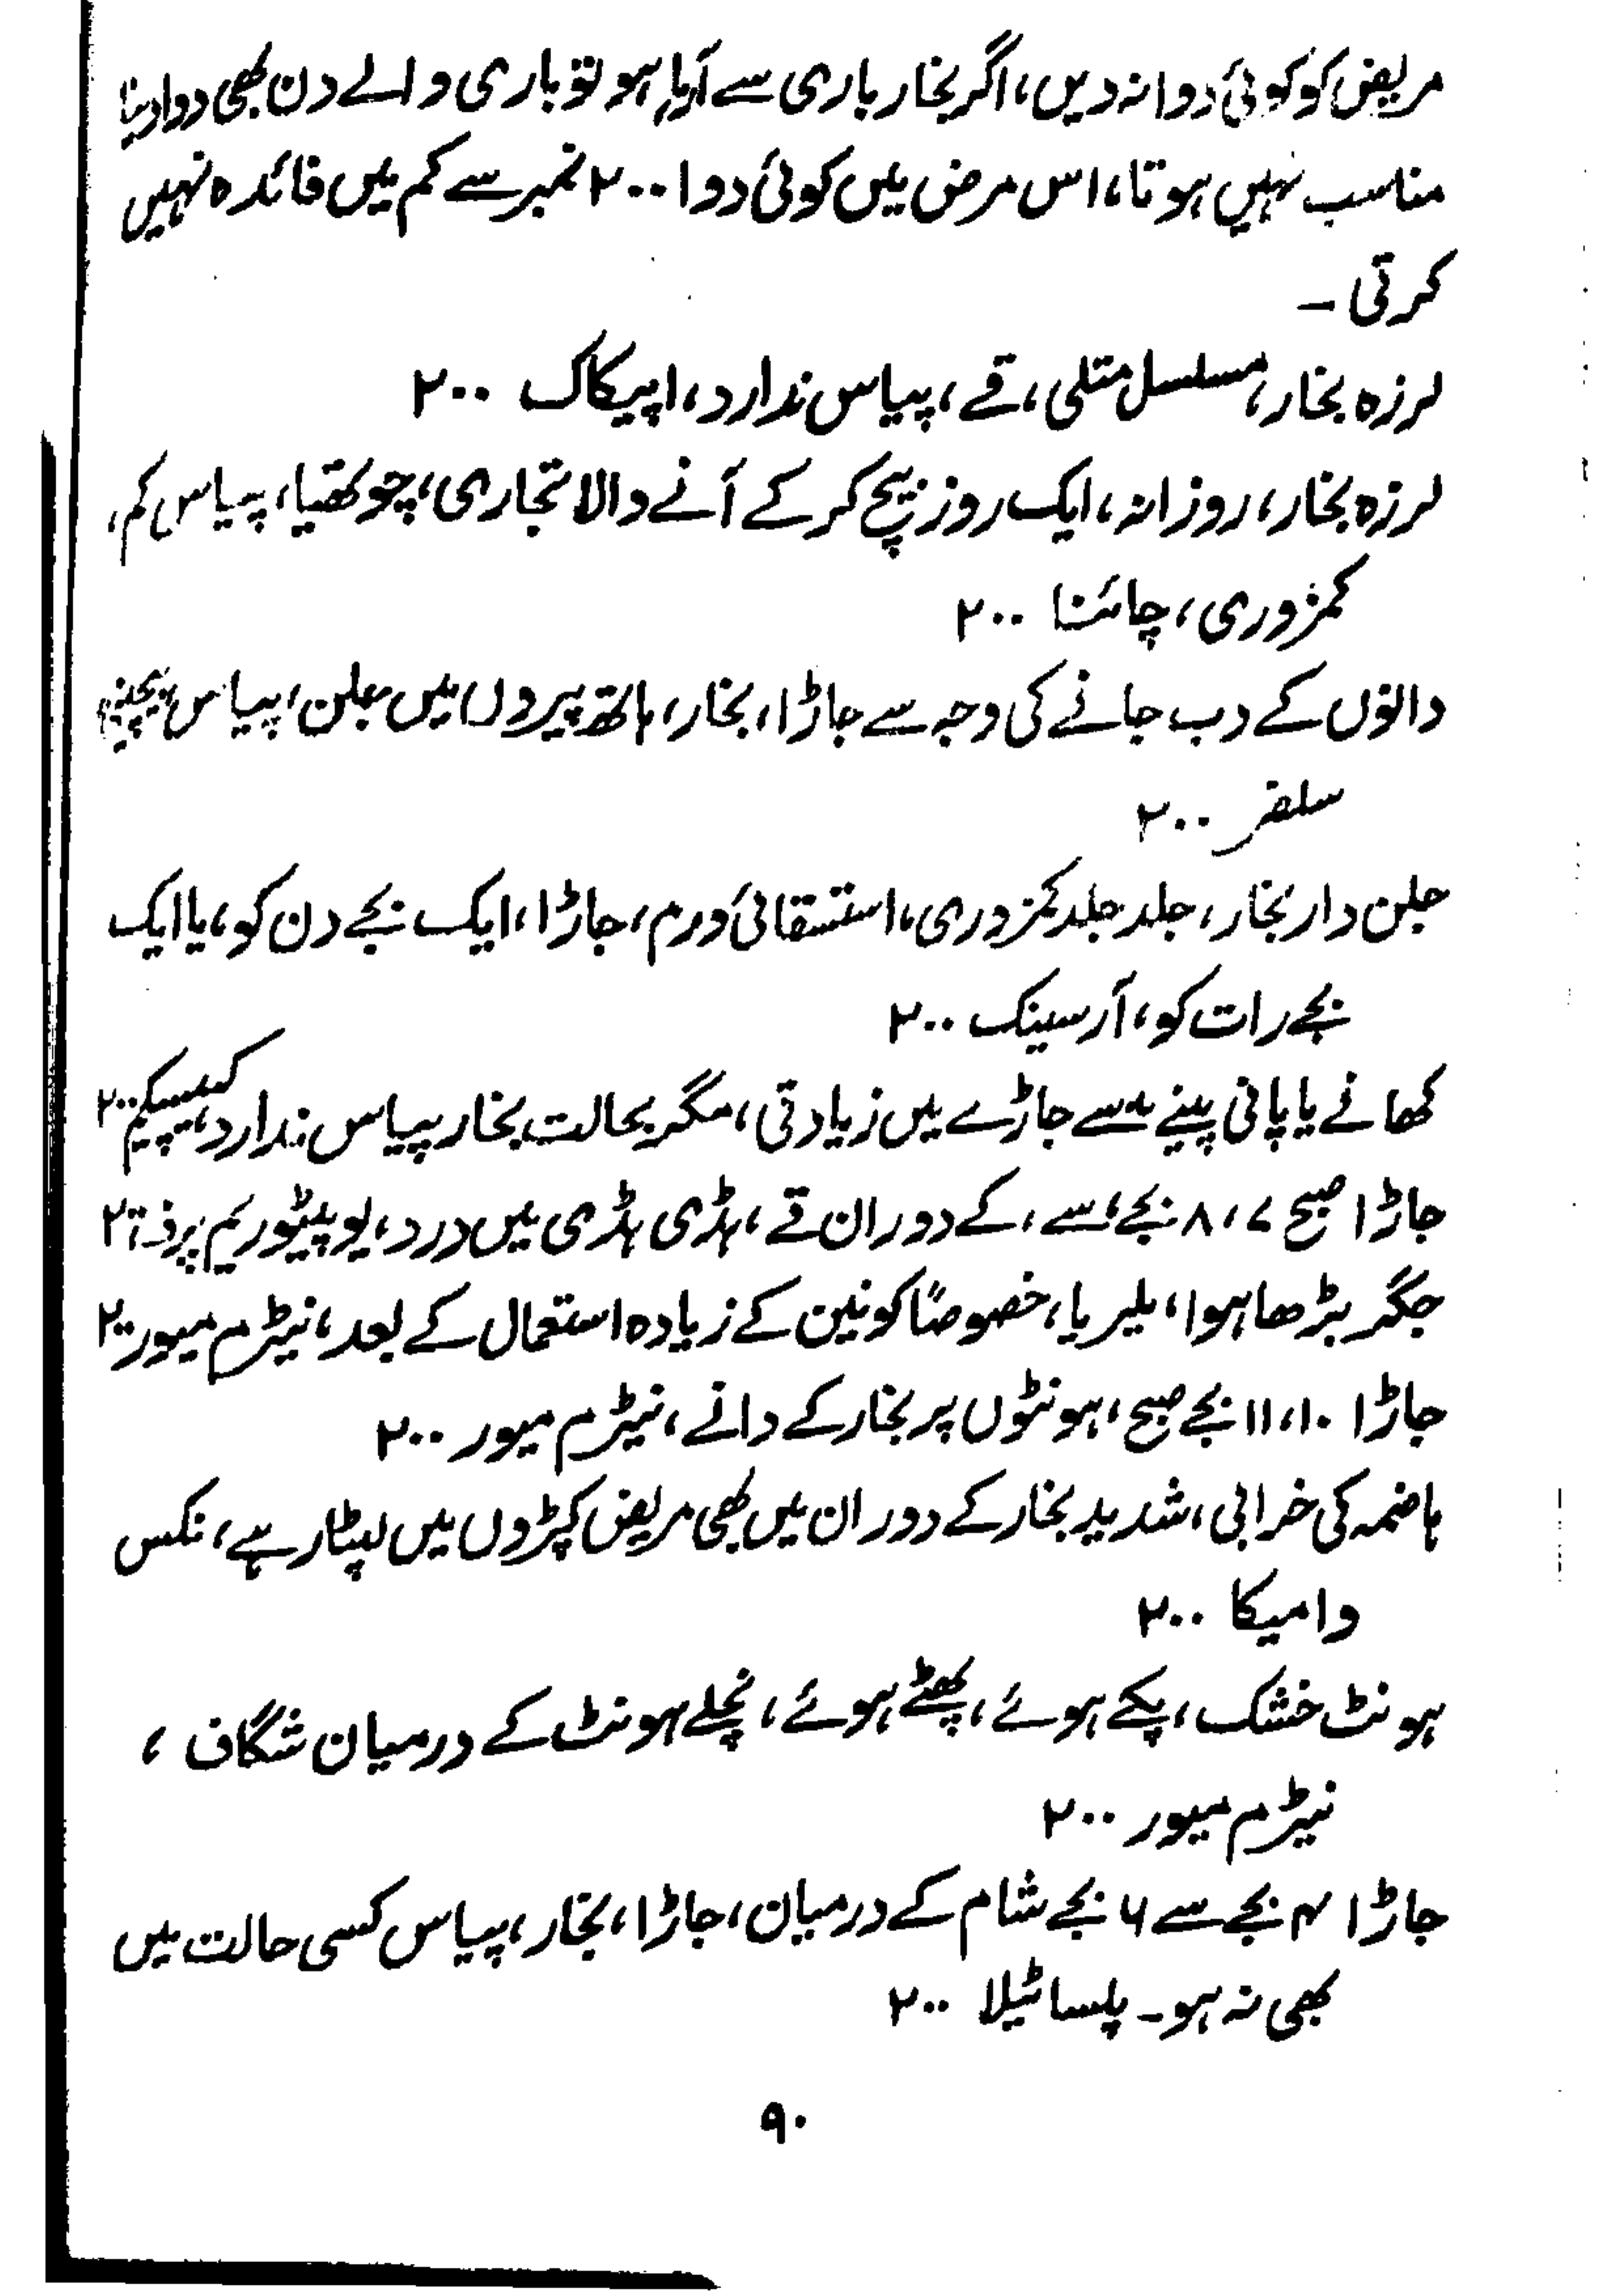 مریض کو کوئی دوا نہ دیں، اگر بخار باری سے آرہا ہو تو باری والے دن بھی دوا دینا
مناسب نہیں ہوتا، اس مرض میں کوئی دوا ۲۰۰ نمبر سے کم میں فائدہ نہیں
کرتی ۔
لرزہ بخار، مسلسل متلی، قے، پیاس ندارد، اپیکاک ۲۰۰
لرزہ بخار، روزانہ، ایک روز بیچ کرکے آنے والا تجاری، چوتھیا، پیاس کم،
کمزوری، چائنا ۲۰۰
دانوں کے دب جانے کی وجہ سے جاڑا، بخار، ہاتھ پیروں میں جلن، پیاس، بیچینی
سلفر ۲۰۰
جلن دار بخار، جلد جلد کمزوری، استسقائی ورم، جاڑا، ایک بجے دن کو، یا ایک
بجے رات کو، آرسینک ۲۰۰
کھانے یا پانی پینے سے جاڑے میں زیادتی، مگر بحالت بخار پیاس ندارد، کیپسیکم ۲۰۰
جاڑا صبح ۷، ۸ بجے سے، کے دوران قے، ہڈی ہڈی میں درد، یوپیٹوریم پرف ۲۰۰
جگر بڑھا ہوا، ملیریا، خصوصًا کونین کے زیادہ استعمال کے بعد، نیٹرم میور ۲۰۰
جاڑا ۱۰، ۱۱ بجے صبح، ہونٹوں پر بخار کے دانے، نیٹرم میور ۲۰۰
ہاضمہ کی خرابی، شدید بخار کے دوران میں بھی مریض کپڑوں میں لپٹا رہے، نکس
وامیکا ۲۰۰
ہونٹ خشک، پکے ہوئے، پھٹے ہوئے، نچلے ہونٹ کے درمیان شگاف ،
نیٹرم میور ۲۰۰
جاڑا ۴ بجے سے ۶ بجے شام کے درمیان، جاڑا، بخار، پیاس کسی حالت میں
بھی نہ ہو۔ پلساٹیلا ۲۰۰
۹۰